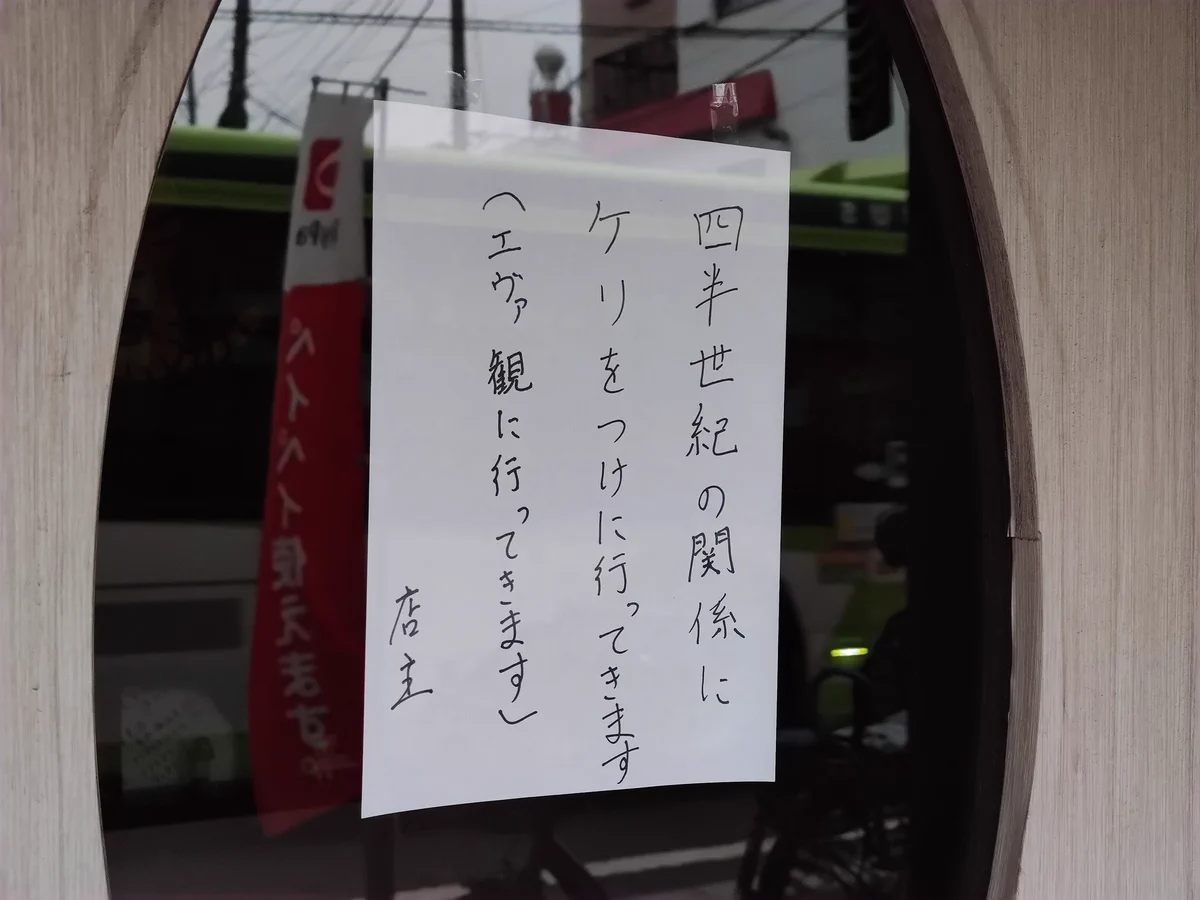 四半世紀の関係に
ケリをつけに行ってきます
(エヴァ観に行ってきます)
店主
ペイペイ使えます